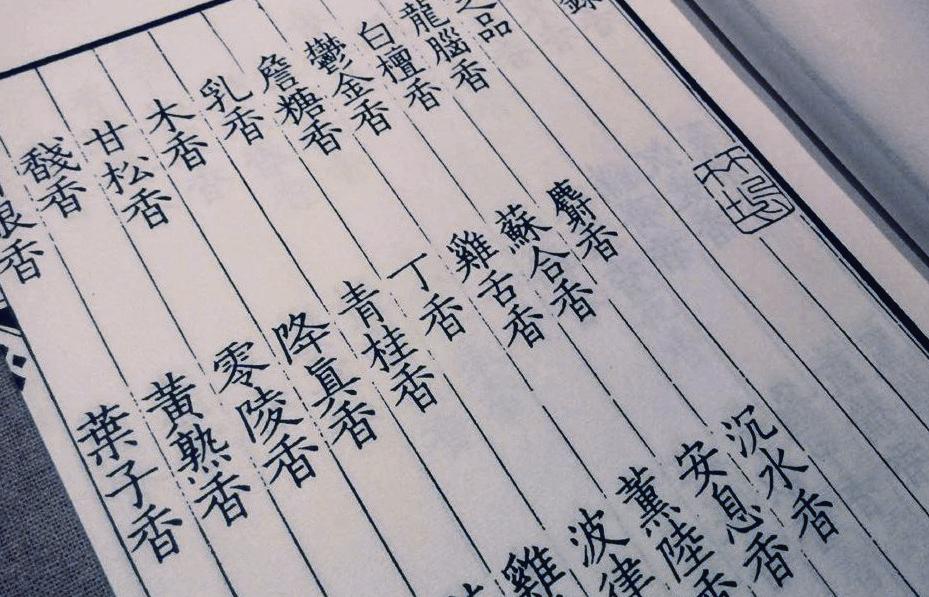 錄
之品
龍腦香 麝香 沉水香
白檀香 蘇合香 安息香
鬱金香 雞舌香 薰陸香
詹糖香 丁香 波律
乳香 青桂香 雞
木香 降真香
甘松香 零陵香
馢香 黃熟香
香 葉子香